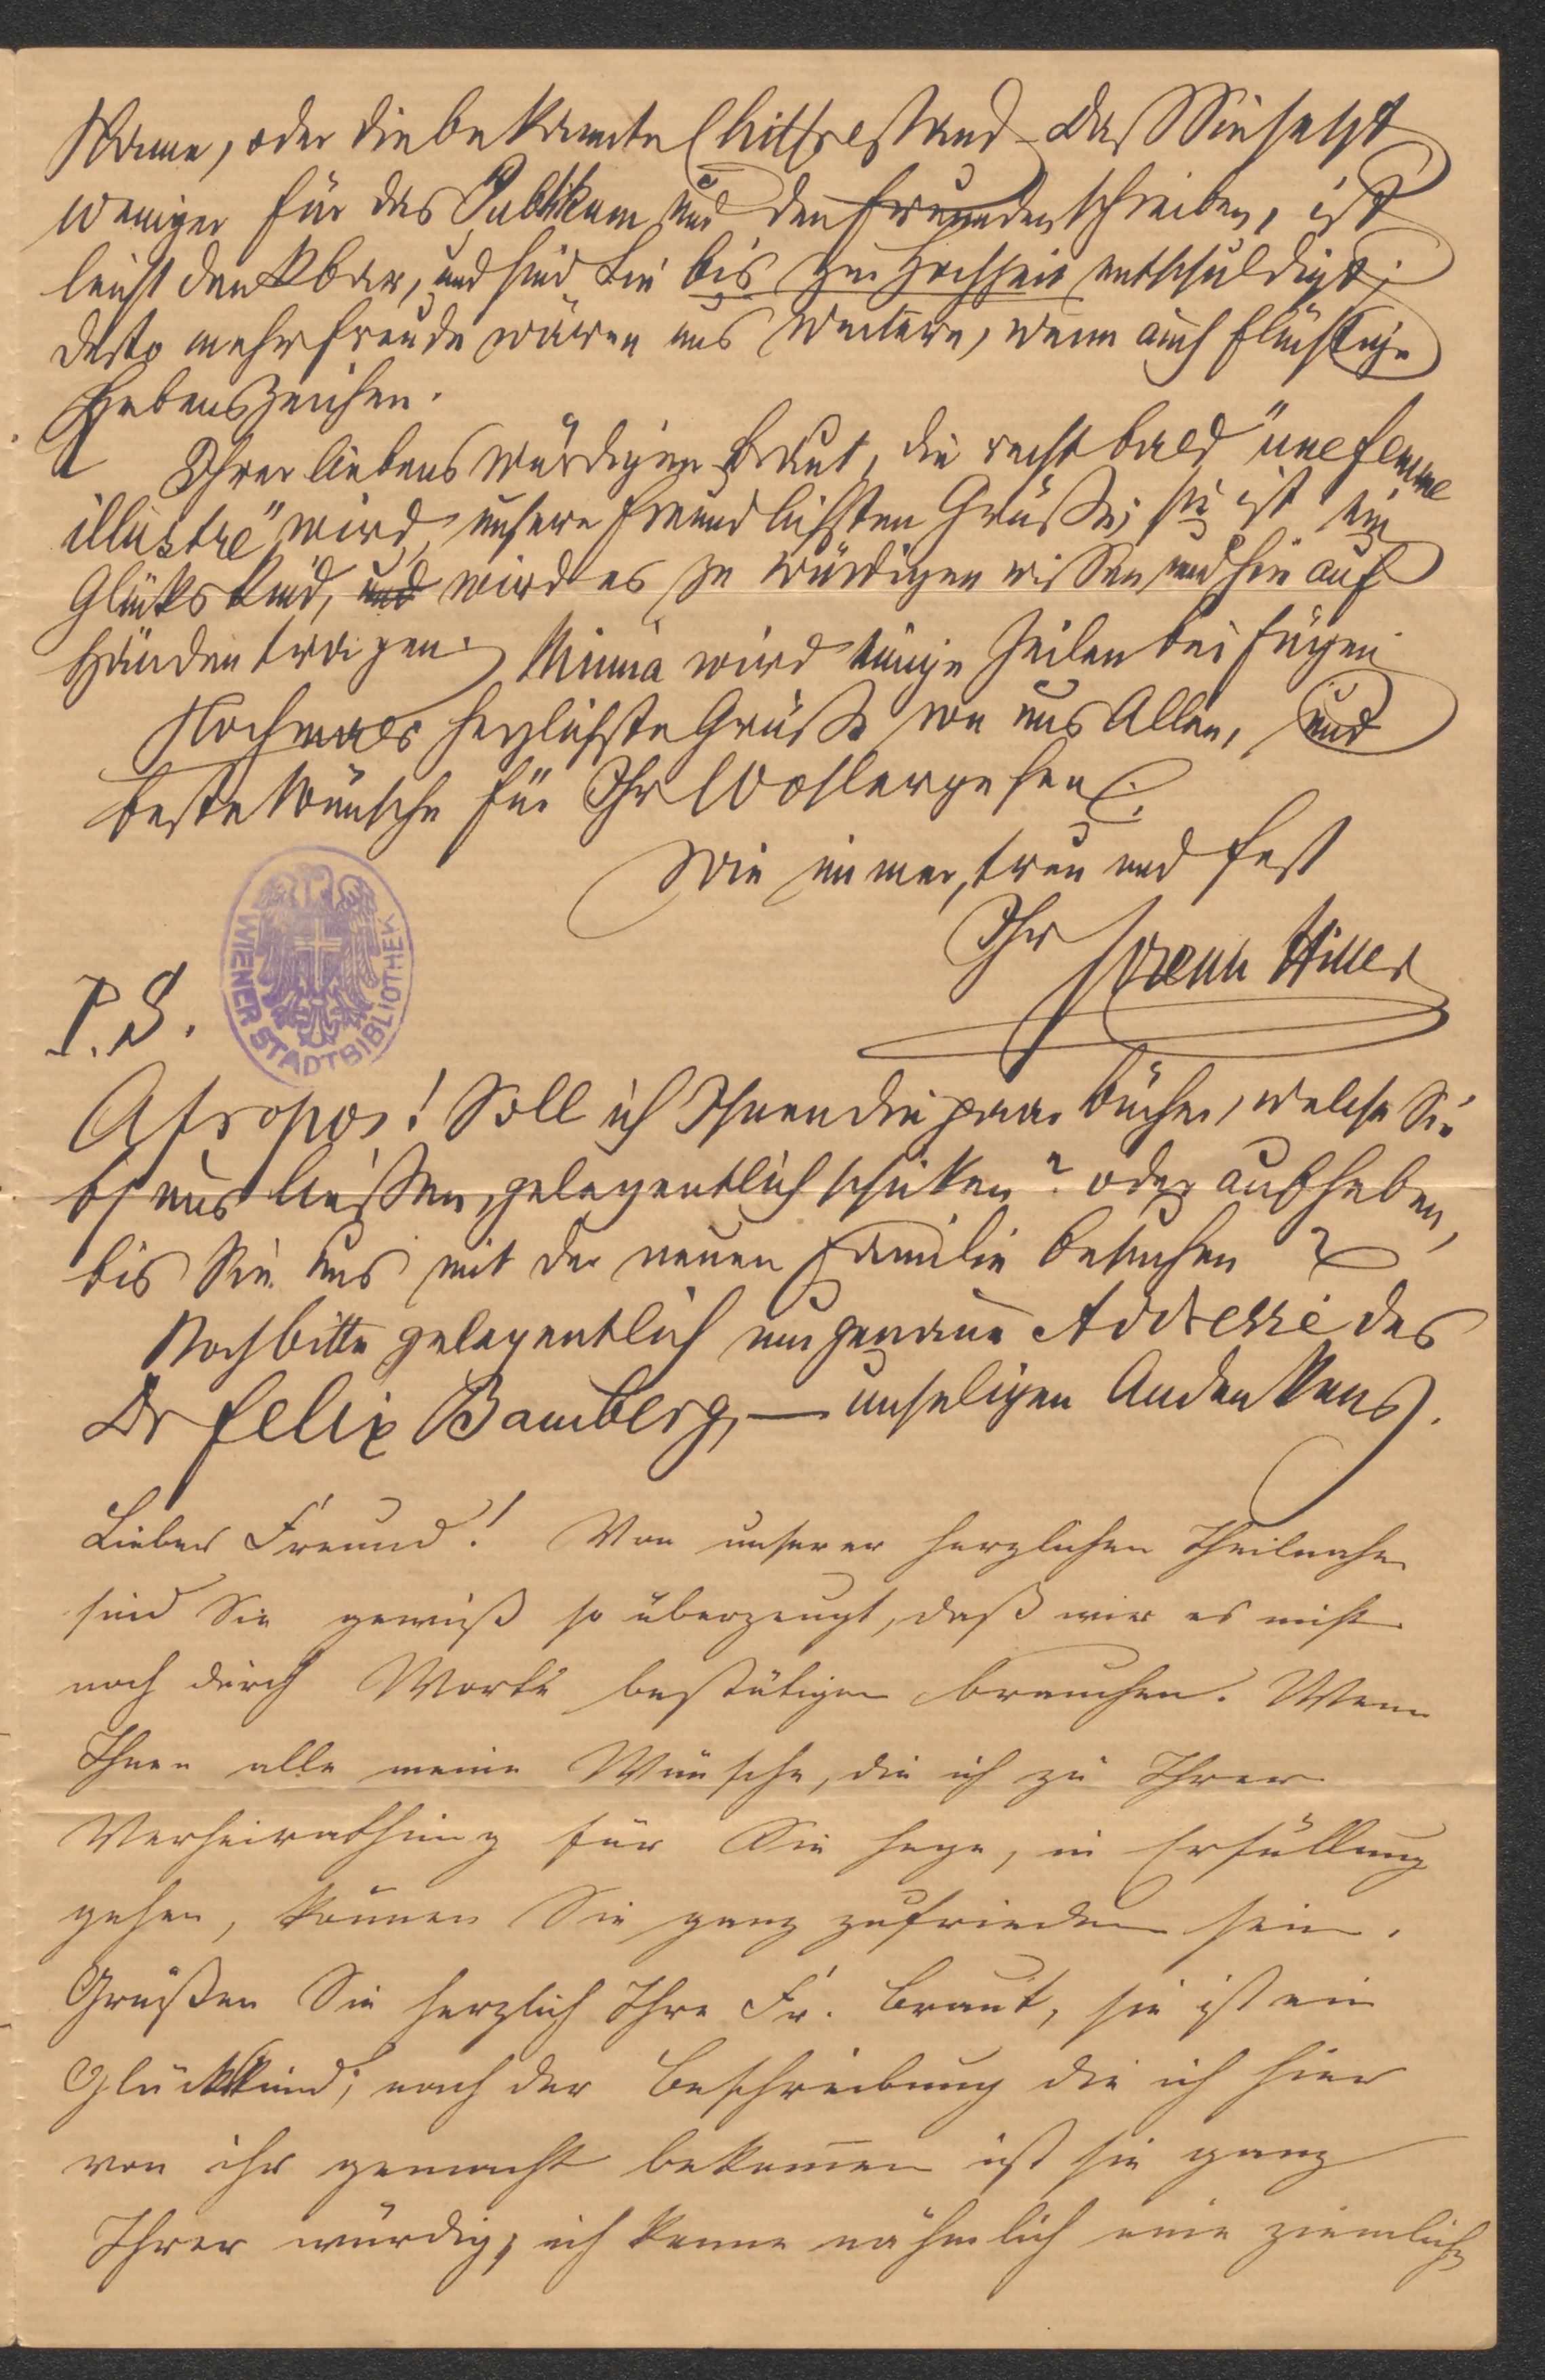 Name, oder die bekannte Chiffre stand. Daß Sie jetzt
weniger für das Publikum und den Freunden schreiben, ist
leicht denkbar, und sind Sie bis zur Hochzeit entschuldigt;
desto mehr Freude wären uns weitere, wenn auch flüchtige
Lebenszeichen.
Ihrer liebenswürdigen Braut, die recht bald "une femme
illustre" wird, unsere freundlichsten Grüße; sie ist ein
Glückskind, und wird es zu würdigen wissen und Sie auf
Händen tragen. Minna wird einige Zeilen beifügen.
Nochmals herzlichste Grüße von uns Allen, und
beste Wünsche für Ihr Wohlergehen.
Wie immer, treu und fest
Ihr
P.S.
WIENER STADTBIBLIOTHEK
Apropos! Soll ich Ihnen die paar Bücher, welche Sie
bei uns liessen, gelegentlich schicken? oder aufheben,
bis Sie uns mit der neuen Familie besuchen?
Noch bitte gelegentlich um genaue Addresse des
Dr Felix Bamberg, — unseligen Andenkens.
Lieber Freund! Von unserer herzlichen Theilnahme
sind Sie gewiß so überzeugt, daß wir es nicht
noch durch Worte bestätigen brauchen. Wenn
Ihnen alle meine Wünsche, die ich zu Ihrer
Verheirathung für Sie hege, in Erfüllung
gehen, können Sie ganz zufrieden sein.
Grüßen Sie herzlich Ihre Fr. Braut, sie ist ein
Glückskind; nach der Beschreibung die ich hier
von ihr gemacht bekommen ist sie ganz
Ihrer würdig; ich kenne nähmlich eine ziemliche